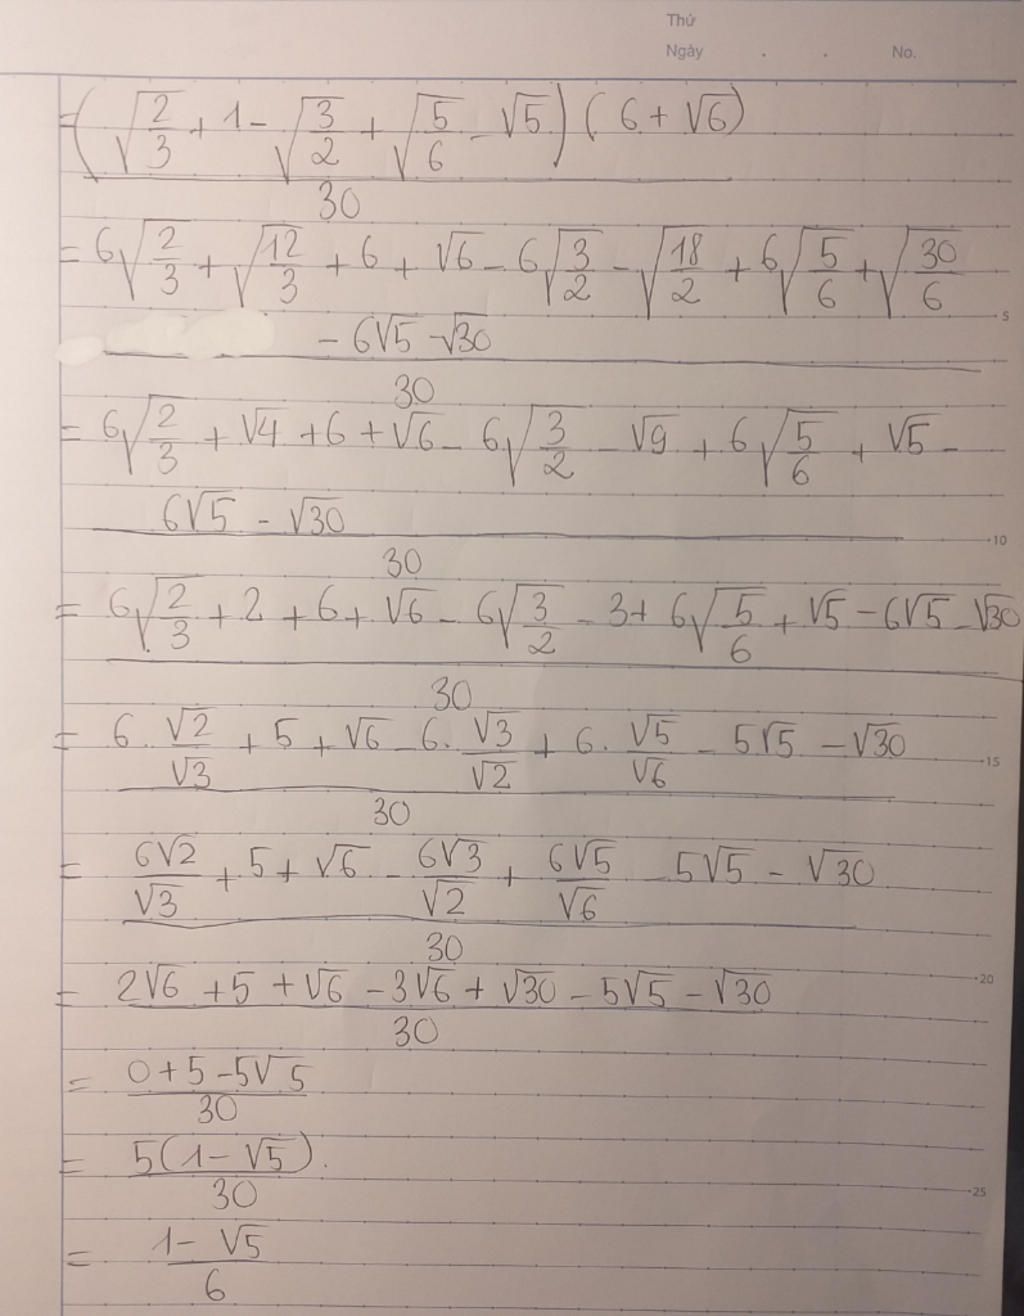 Thứ
Ngày . . No.
= (√(2/3) + 1 - √(3/2) + √(5/6) - √5) (6 + √6)
30
= 6√(2/3) + √(12/3) + 6 + √6 - 6√(3/2) - √(18/2) + 6√(5/6) + √(30/6)
5
- 6√5 - √30
30
= 6√(2/3) + √4 + 6 + √6 - 6√(3/2) - √9 + 6√(5/6) + √5 -
6√5 - √30
10
30
= 6√(2/3) + 2 + 6 + √6 - 6√(3/2) - 3 + 6√(5/6) + √5 - 6√5 - √30
30
= 6 . √2/√3 + 5 + √6 - 6. √3/√2 + 6 . √5/√6 - 5√5 - √30
15
30
= 6√2/√3 + 5 + √6 - 6√3/√2 + 6√5/√6 - 5√5 - √30
30
= 2√6 + 5 + √6 - 3√6 + √30 - 5√5 - √30
20
30
= 0 + 5 - 5√5
30
= 5(1 - √5).
30
25
= 1 - √5
6